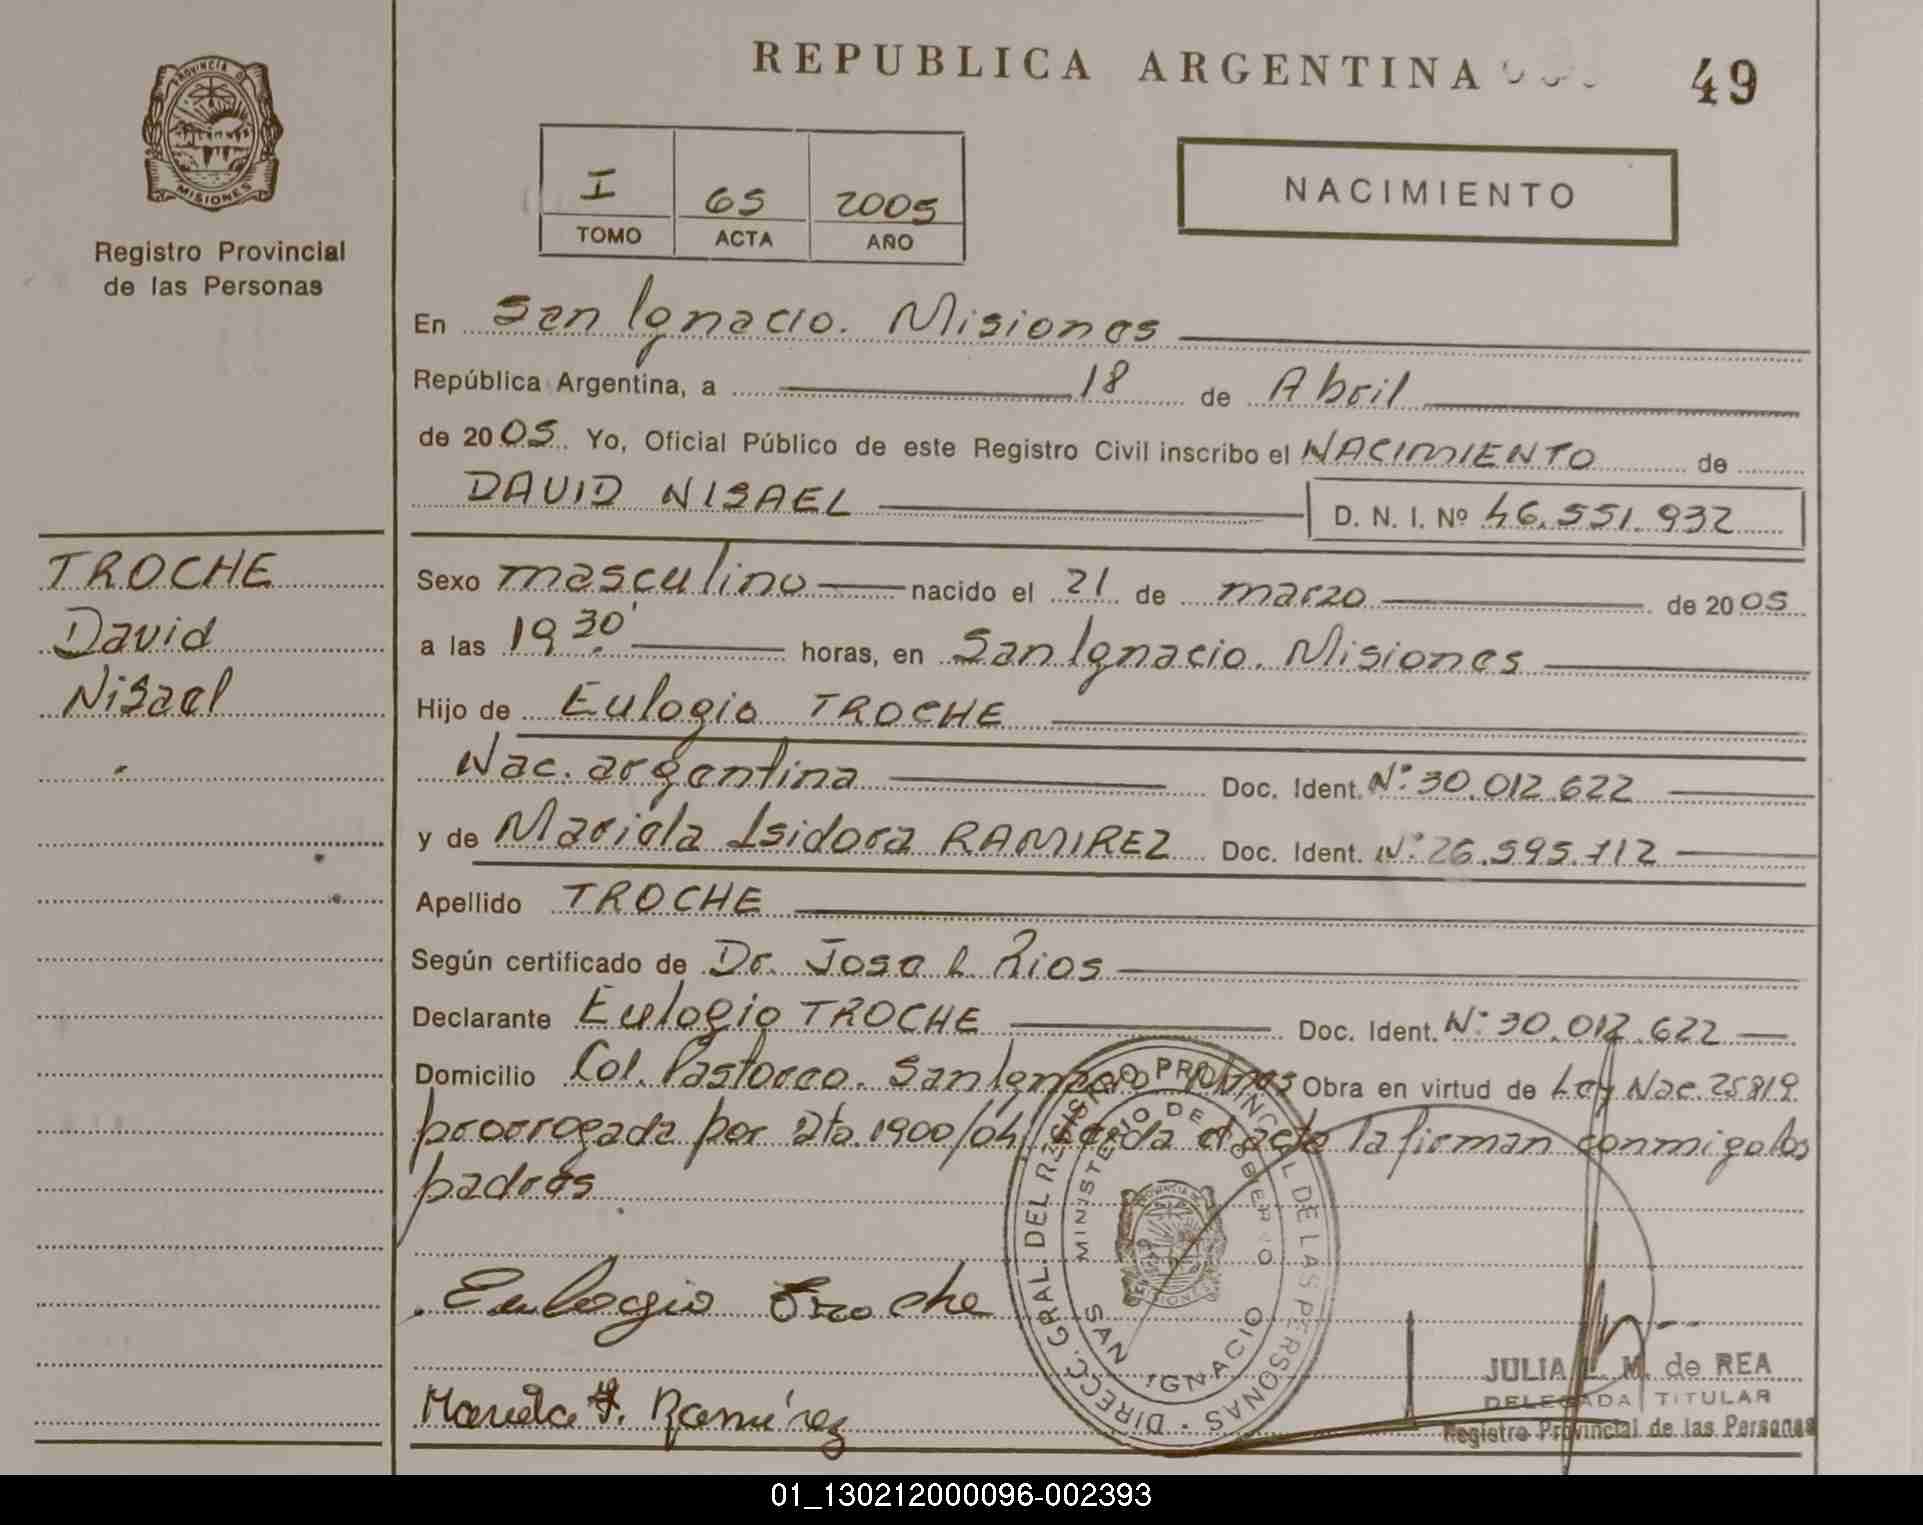 REPUBLICA ARGENTINA
49
PROVINCIA DE
MISIONES
Registro Provincial
de las Personas
I 65 2005
TOMO ACTA AÑO
NACIMIENTO
En San Ignacio. Misiones
República Argentina, a 18 de Abril
de 2005. Yo, Oficial Público de este Registro Civil inscribo el NACIMIENTO de
DAVID NISAEL D. N. I. Nº 46.551.932
TROCHE
David
Nisael
Sexo masculino nacido el 21 de marzo de 2005
a las 19,30' horas, en San Ignacio. Misiones
Hijo de Eulogio TROCHE
Nac. argentina Doc. Ident. Nº 30.012.622
y de Mariela Isidora RAMIREZ Doc. Ident. Nº 26.595.112
Apellido TROCHE
Según certificado de Dr. Jose L. Rios
Declarante Eulogio TROCHE Doc. Ident. Nº 30.012.622
Domicilio Col. Pastoreo. San Ignacio Obra en virtud de Ley Nac. 25819
prorrogada por Dto. 1900/04, Leida el acta la firman conmigo los
padres
Eulogio Troche
Mariela I. Ramírez
DIRECC. GRAL. DEL REGISTRO PROVINCIAL DE LAS PERSONAS
MINISTERIO DE GOBIERNO
SAN IGNACIO
PROVINCIA DE
MISIONES
JULIA L. M. de REA
DELEGADA TITULAR
Registro Provincial de las Personas
01_130212000096-002393